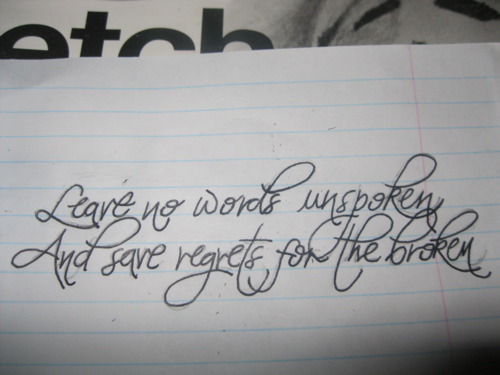 etch
Leave no words unspoken,
And save regrets for the broken